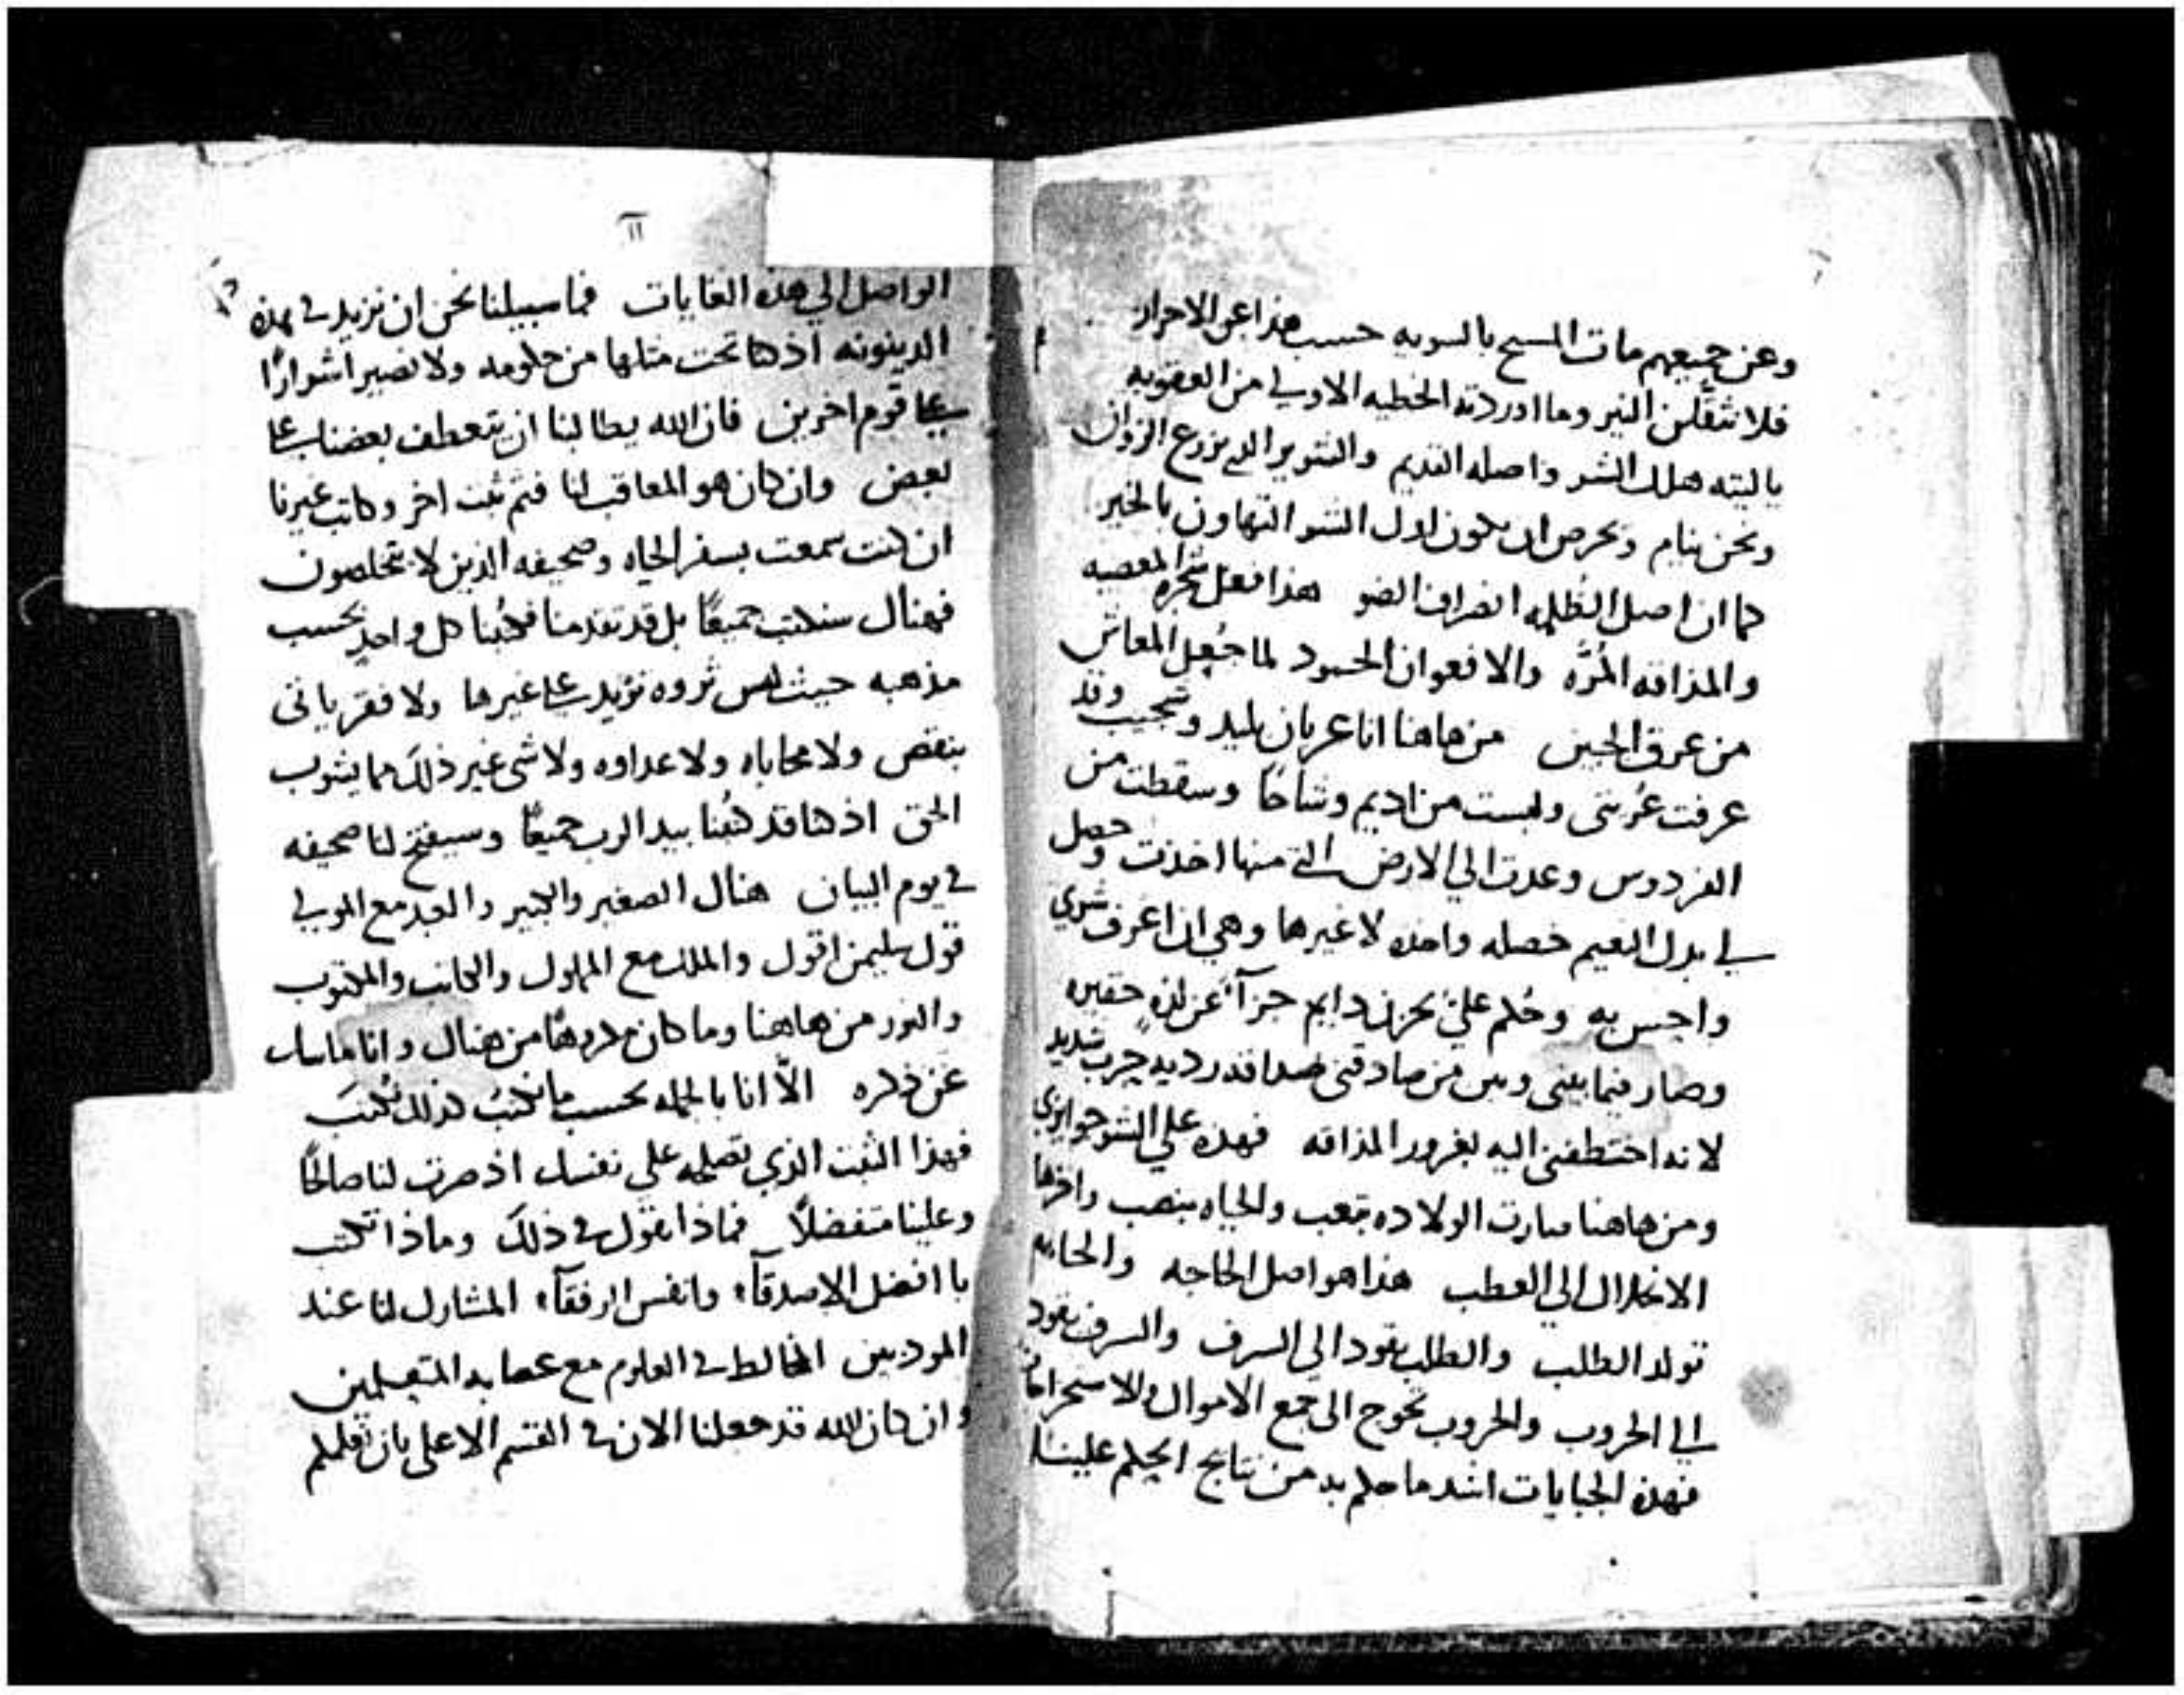 وعن جميعهم مات المسيح بالسويه حسب هذا عن الاحرار
فلا تثقلن النير وما اوردته الخطيه الاولي من العقوبه
ياليته هلك الشر واصله القديم والشرير الذي زرع الزوان
ونحن نيام ونحرص ان يكون اول الشر التهاون بالخير
كما ان اصل الظلمه انصراف الضو هذا فعل شجره المعصيه
والمذاقه المُرَّه والافعوان الحسود لما جُعِل المعاش
من عرق الجبين من هاهنا انا عريان بليد وشجيب وقد
عرفت عُريتى ولبست من اديم وشاحًا وسقطت من
الفردوس وعدت الي الارض التي منها اخذت وحصل
لي بدل النعيم خصله واحده لا غيرها وهي ان اعرف شري
واحس به وحُكم عليّ بحزن دايم جزآءً عن لذهٍ حقيره
وصار فيما بيني وبين من صادقني صداقه رديه حرب شديد
لانه اختطفني اليه بغرور المذاقه فهذه علي الشر جوايزي
ومن هاهنا صارت الولاده بتعب والحياه بنصب واخرها
الانحلال الي العطب هذا هو اصل الحاجه والحاجه
تولد الطلب والطلب يقود الي السرف والسرف يقود
الي الحروب والحروب تحوج الى جمع الاموال
فهذه الجبايات اشد ما حكم به من نتايج الحكم علينا
١١
الواصل الي هذه الغايات فما سبيلنا نحن ان نزيد في هذه
الدينونه اذ كنا تحت مثلها من حكومه ولا نصير اشرارًا
علي قوم اخرين فان الله يطالبنا ان يتعطف بعضنا علي
بعض وان كان هو المعاقب لنا فثم ثبت اخر وكاتب غيرنا
ان كنت سمعت بسفر الحياه وصحيفه الذين لا يخلصون
فهناك سنكتب جميعًا بل قد تقدمنا فكُتبنا كل واحدٍ بحسب
مذهبه حيث ليس ثروه تزيد علي غيرها ولا فقر ياتى
بنقص ولا محاباه ولا عداوه ولا شى غير ذلكَ مما يشوب
الحق اذ كنا قد كُتبنا بيد الرب جميعًا وسيفتح لنا صحيفه
في يوم البيان هناك الصغير والكبير والعبد مع المولي
قول سليمن اقول والملك مع المملوك والكاتب والمكتوب
والنور من هاهنا وما كان من هناك وانا ماسك
عن ذكره الاّ انا بالجمله بحسب ما نكتبُ كذلك نُكتبَ
فهذا الثبت الذي تصلحه علي نفسك اذ صرت لنا صالحًا
وعلينا متفضلاً فماذا تقول في ذلكَ وماذا تكتب
يا افضل الاصدقآء وانفس الرفقآء المشارك لنا عند
المودبين المخالط في العلوم مع عصابه المتعلمين
وان كان الله قد جعلنا الان في القسم الاعلى بان